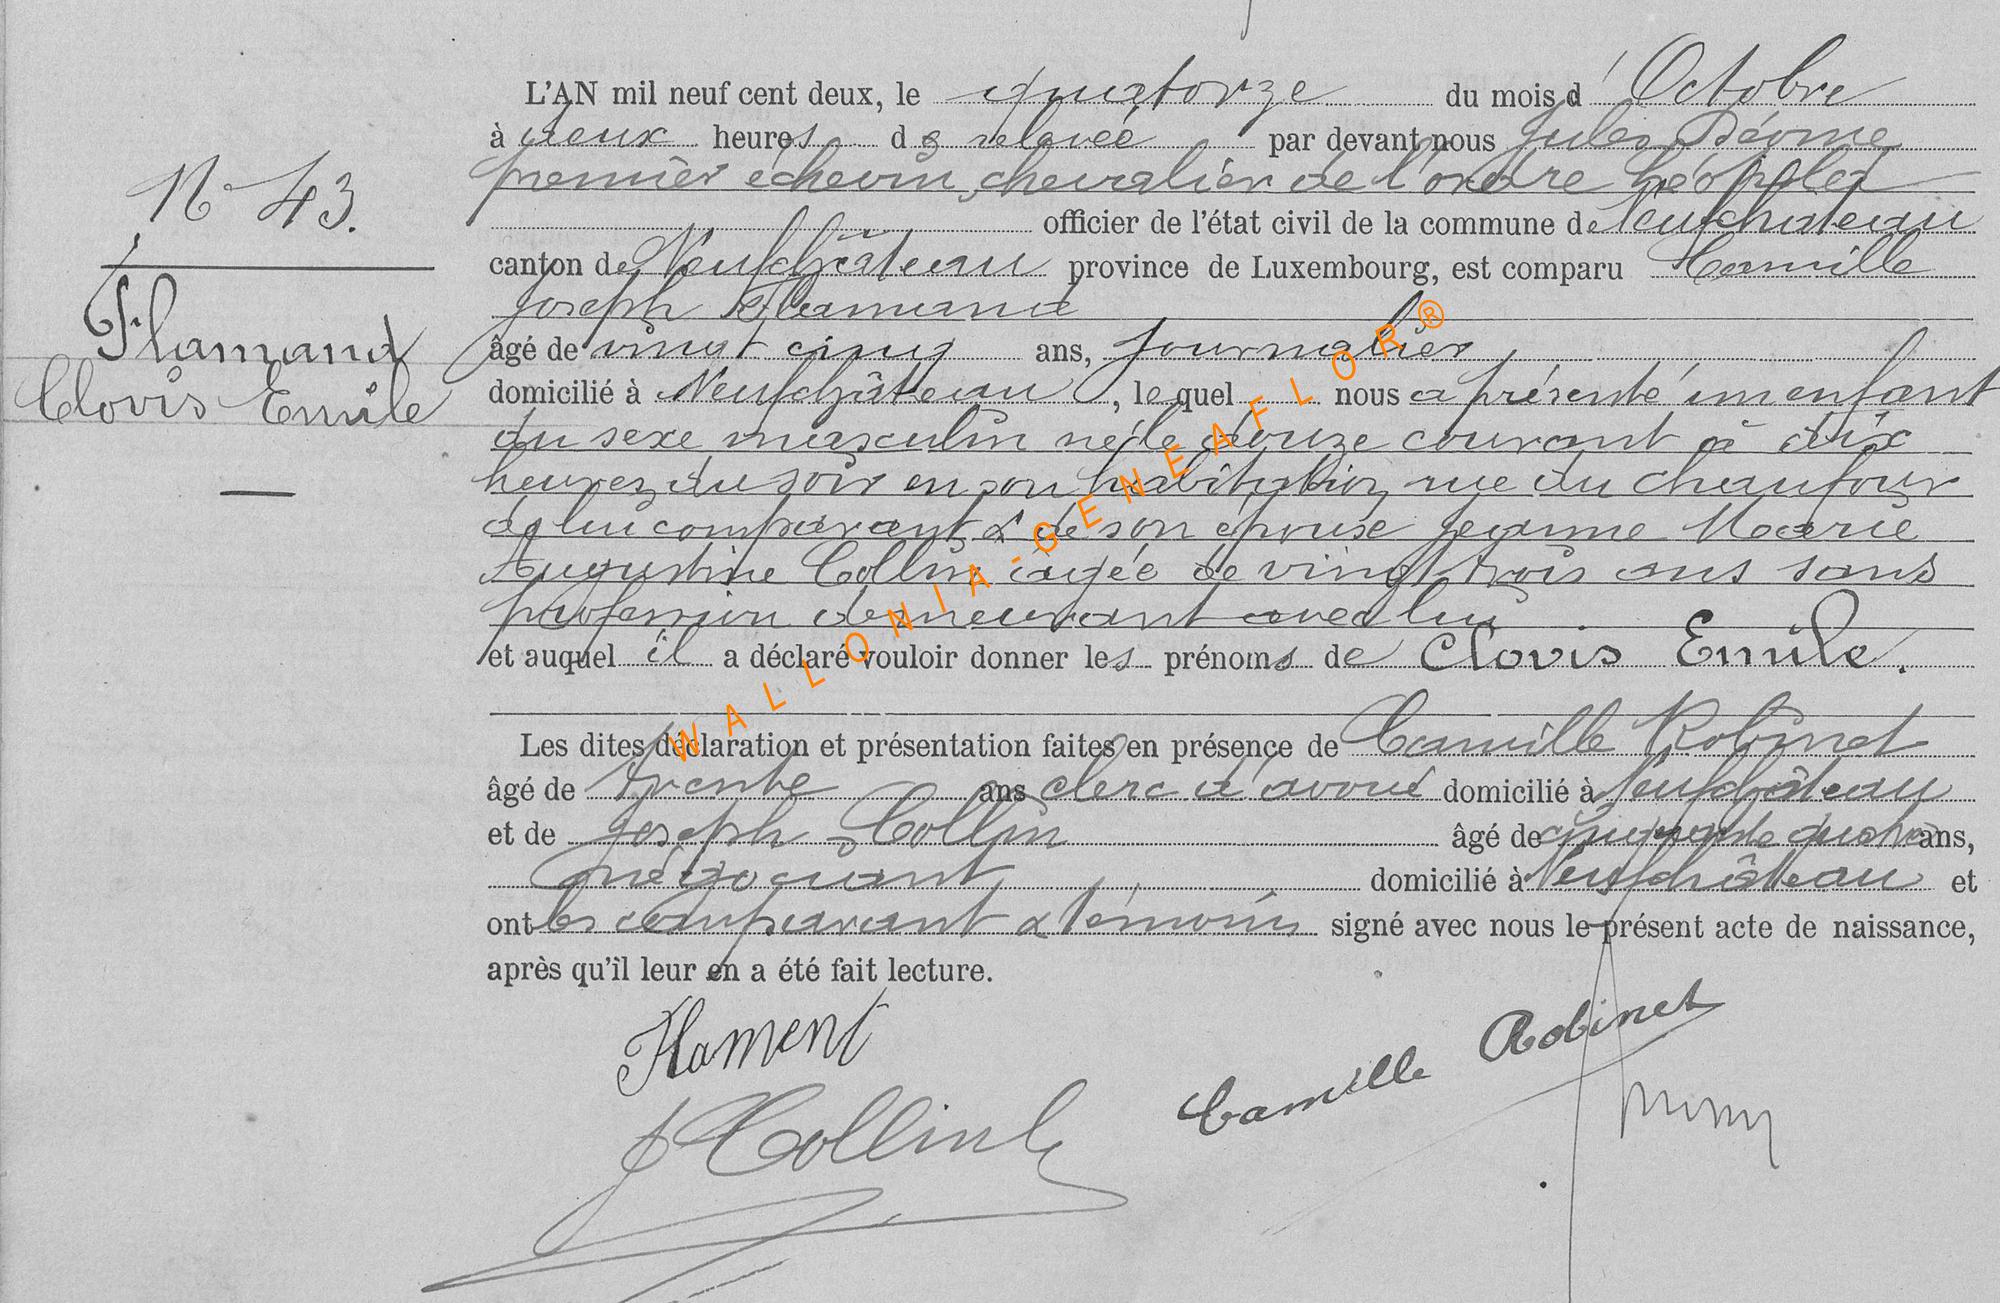 N° 43.
Flamand
Clovis Emile
L'AN mil neuf cent deux, le quatorze du mois d'Octobre
à deux heures de relevée par devant nous Jules
premier échevin, chevalier de l'ordre Léopold
officier de l'état civil de la commune de Neufchâteau
canton de Neufchâteau province de Luxembourg, est comparu Camille
Joseph Flamand
âgé de vingt cinq ans, journalier
domicilié à Neufchâteau, lequel nous a présenté un enfant
du sexe masculin né le douze courant à dix
heures du soir en son habitation, rue du Chaufour
de lui comparant & de son épouse Jeanne Marie
Augustine Collin âgée de vingt trois ans sans
profession demeurant avec lui
et auquel il a déclaré vouloir donner les prénoms de Clovis Emile.
Les dites déclaration et présentation faites en présence de Camille Robinet
âgé de trente ans clerc d'avoué domicilié à Neufchâteau
et de Joseph Collin âgé de cinquante quatre ans,
négociant domicilié à Neufchâteau et
ont les comparant & témoins signé avec nous le présent acte de naissance,
après qu'il leur en a été fait lecture.
Flament
Camille Robinet
J Collin
WALLONIA-GENEAFLOR®